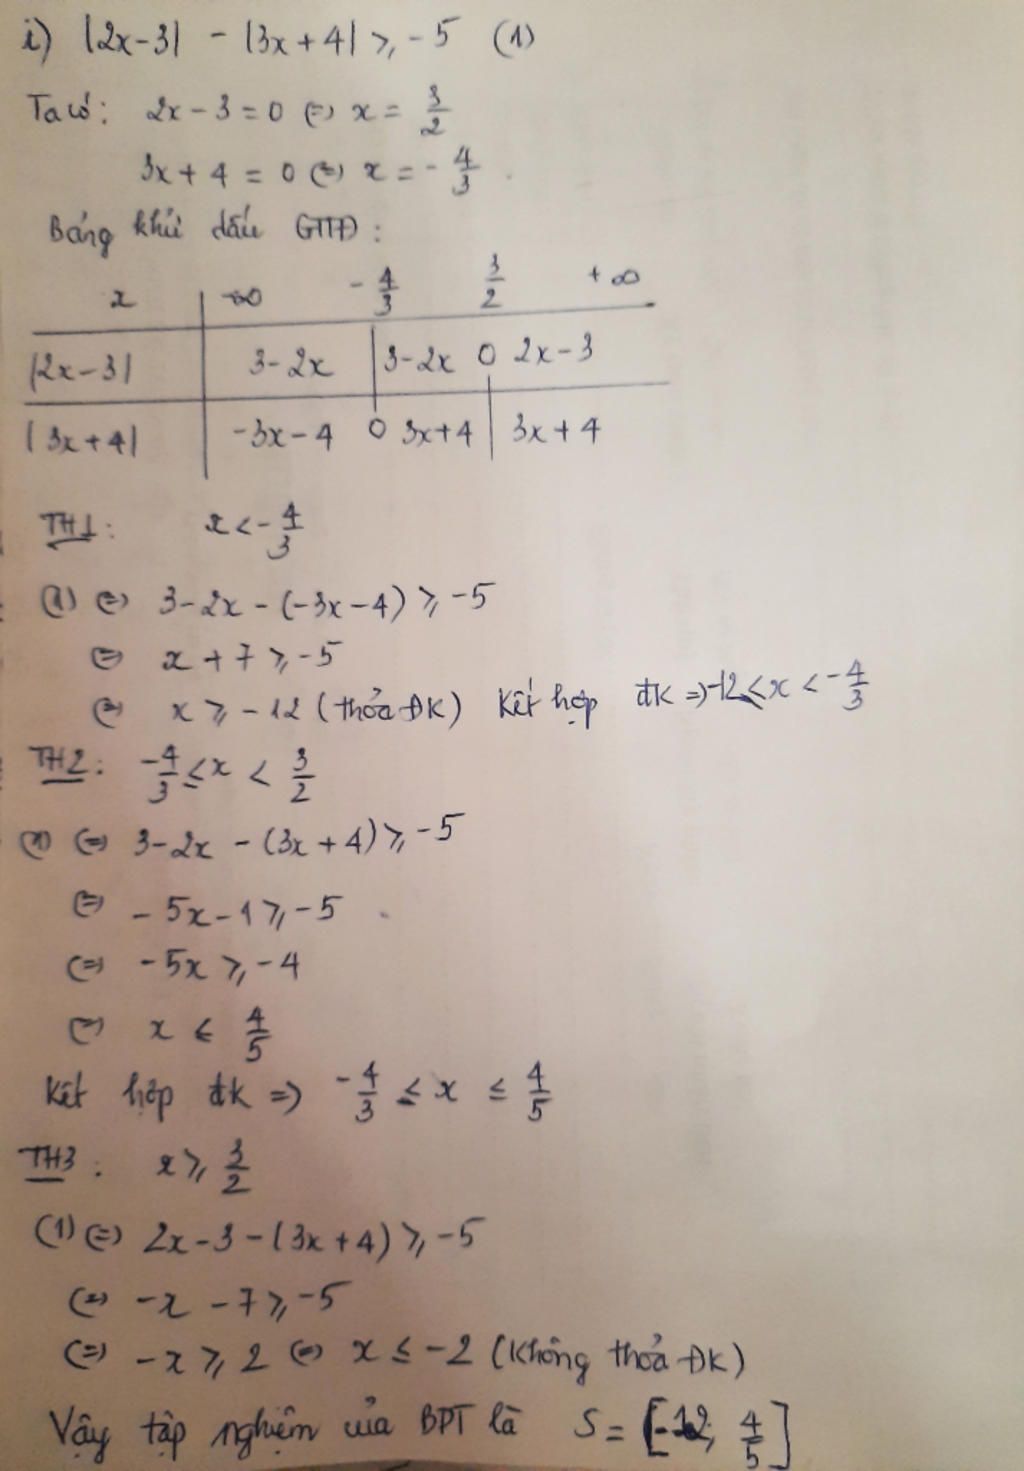 i) |2x-3| - |3x+4| ⩾ -5 (1)
Ta có: 2x - 3 = 0 (=) x = 3/2
3x + 4 = 0 (=) x = - 4/3
Bảng khử dấu GTTĐ:
x -∞ - 4/3 3/2 +∞
|2x-3| 3-2x 3-2x 0 2x-3
|3x+4| -3x-4 0 3x+4 3x+4
TH1: x < - 4/3
(1) (=) 3-2x - (-3x-4) ⩾ -5
(=) x + 7 ⩾ -5
(=) x ⩾ -12 (thỏa ĐK) Kết hợp đk => -12 ⩽ x < - 4/3
TH2: - 4/3 ⩽ x < 3/2
(1) (=) 3-2x - (3x+4) ⩾ -5
(=) -5x-1 ⩾ -5
(=) -5x ⩾ -4
(=) x ⩽ 4/5
Kết hợp đk => - 4/3 ≤ x ≤ 4/5
TH3: x ⩾ 3/2
(1) (=) 2x-3-(3x+4) ⩾ -5
(=) -x -7 ⩾ -5
(=) -x ⩾ 2 (=) x ≤ -2 (Không thỏa ĐK)
Vậy tập nghiệm của BPT là S = [-12; 4/5]